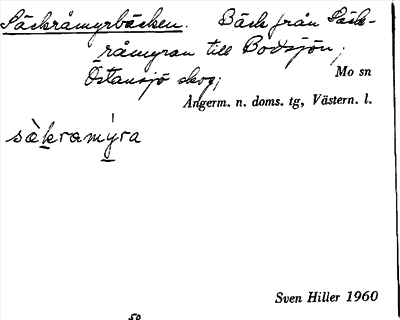 Säckråmyrbäcken. Bäck från Säck-
råmyran till Bodsjön,
Östansjö skog;
Mo sn
Ångerm. n. doms. tg, Västern. l.
sàkramýra
Sven Hiller 1960